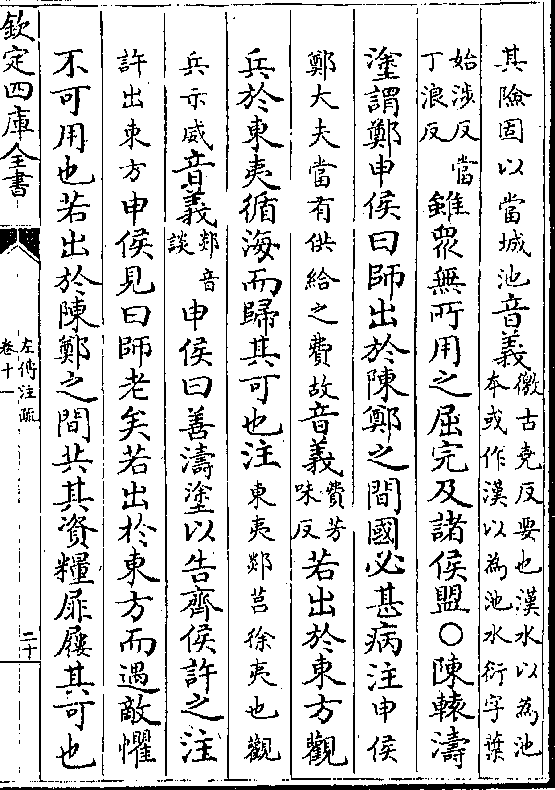 其險固以當城池音義徼古堯反要也漢水以為池本或作漢以為池水衍字葉
始涉反當丁浪反雖眾無所用之屈完及諸侯盟○陳轅濤
塗謂鄭申侯曰師出於陳鄭之間國必甚病注申侯
鄭大夫當有供給之費故音義費芳味反若出於東方觀
兵於東夷循海而歸其可也注東夷郯莒徐夷也觀
兵示威音義郯音談申侯曰善濤塗以告齊侯許之注
許出東方申侯見曰師老矣若出於東方而遇敵懼
不可用也若出於陳鄭之間共其資糧屝屨其可也
欽定四庫全書
左傳注疏
卷十一
二十